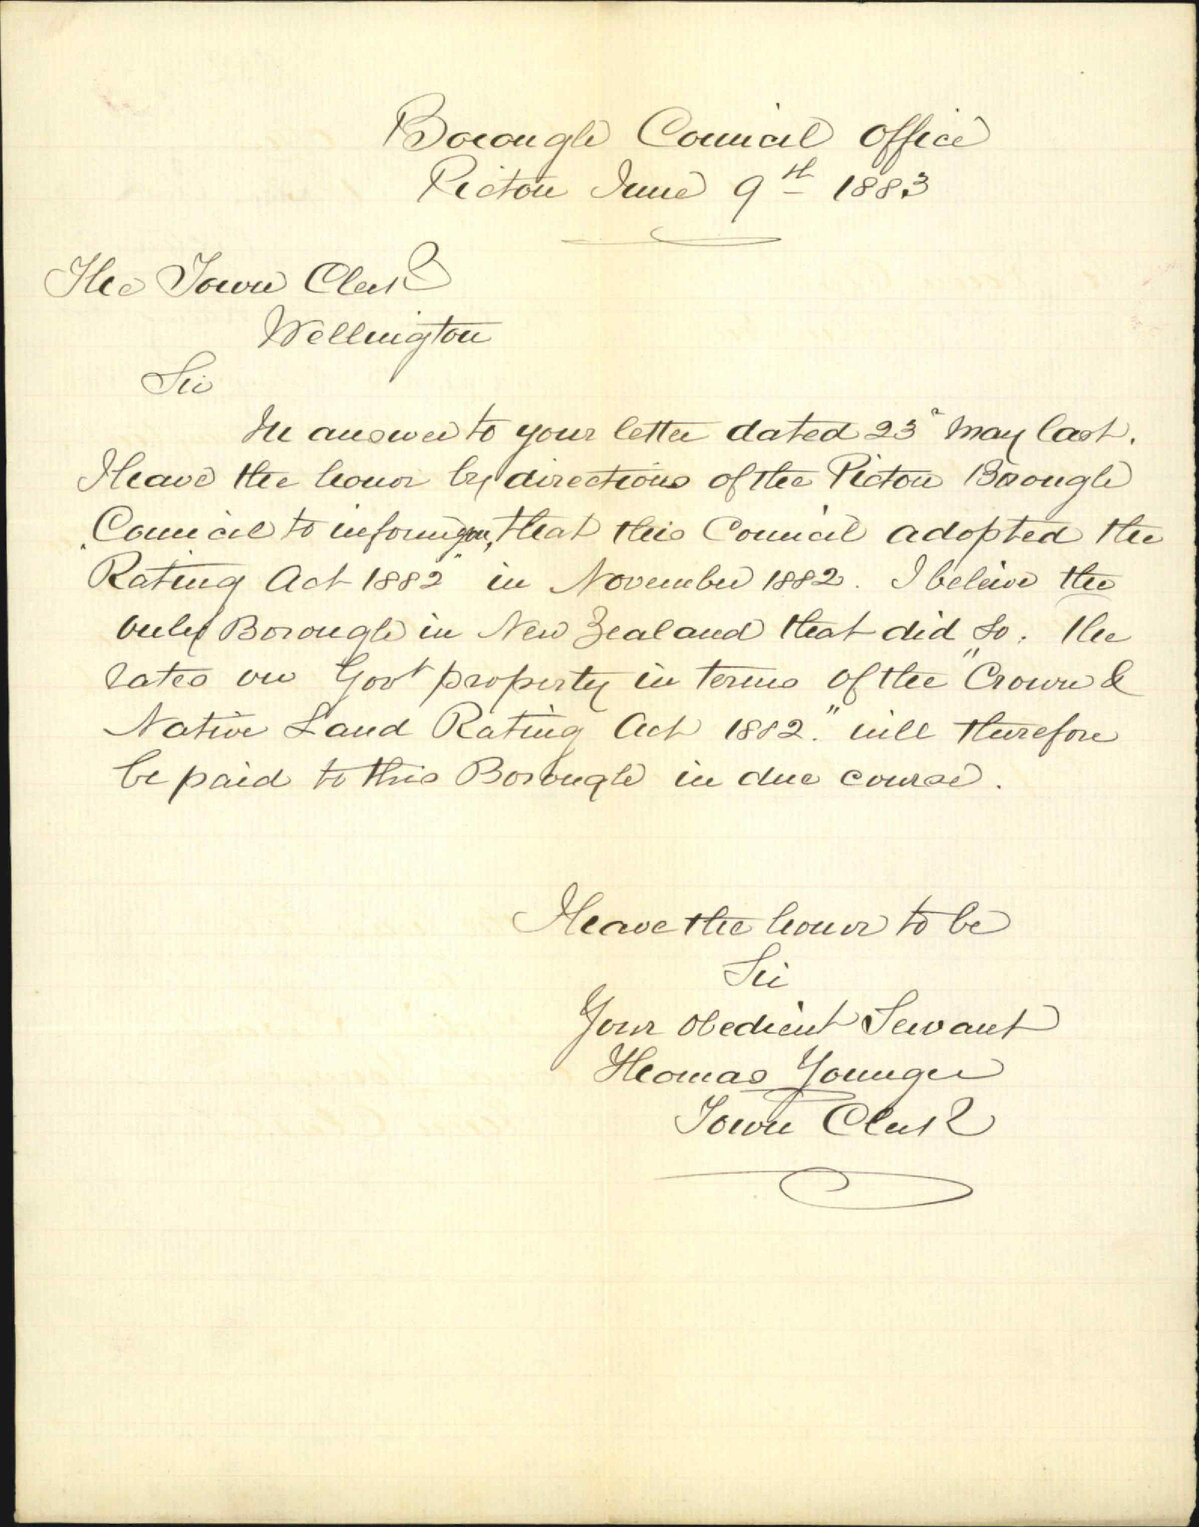 Borough Council Office
Picton June 9th 1883
The Town Clerk
Wellington
Sir
In answer to your letter dated 23d May last.
I have the honor by directions of the Picton Borough
Council to inform you, that this Council adopted the
"Rating Act 1882" in November 1882. I beleive the
only Borough in New Zealand that did so. The
rates on Govt property in terms of the "Crown &
Native Land Rating Act 1882." will therefore
be paid to this Borough in due course.
I have the honor to be
Sir
Your obedient Servant
Thomas Younger
Town Clerk